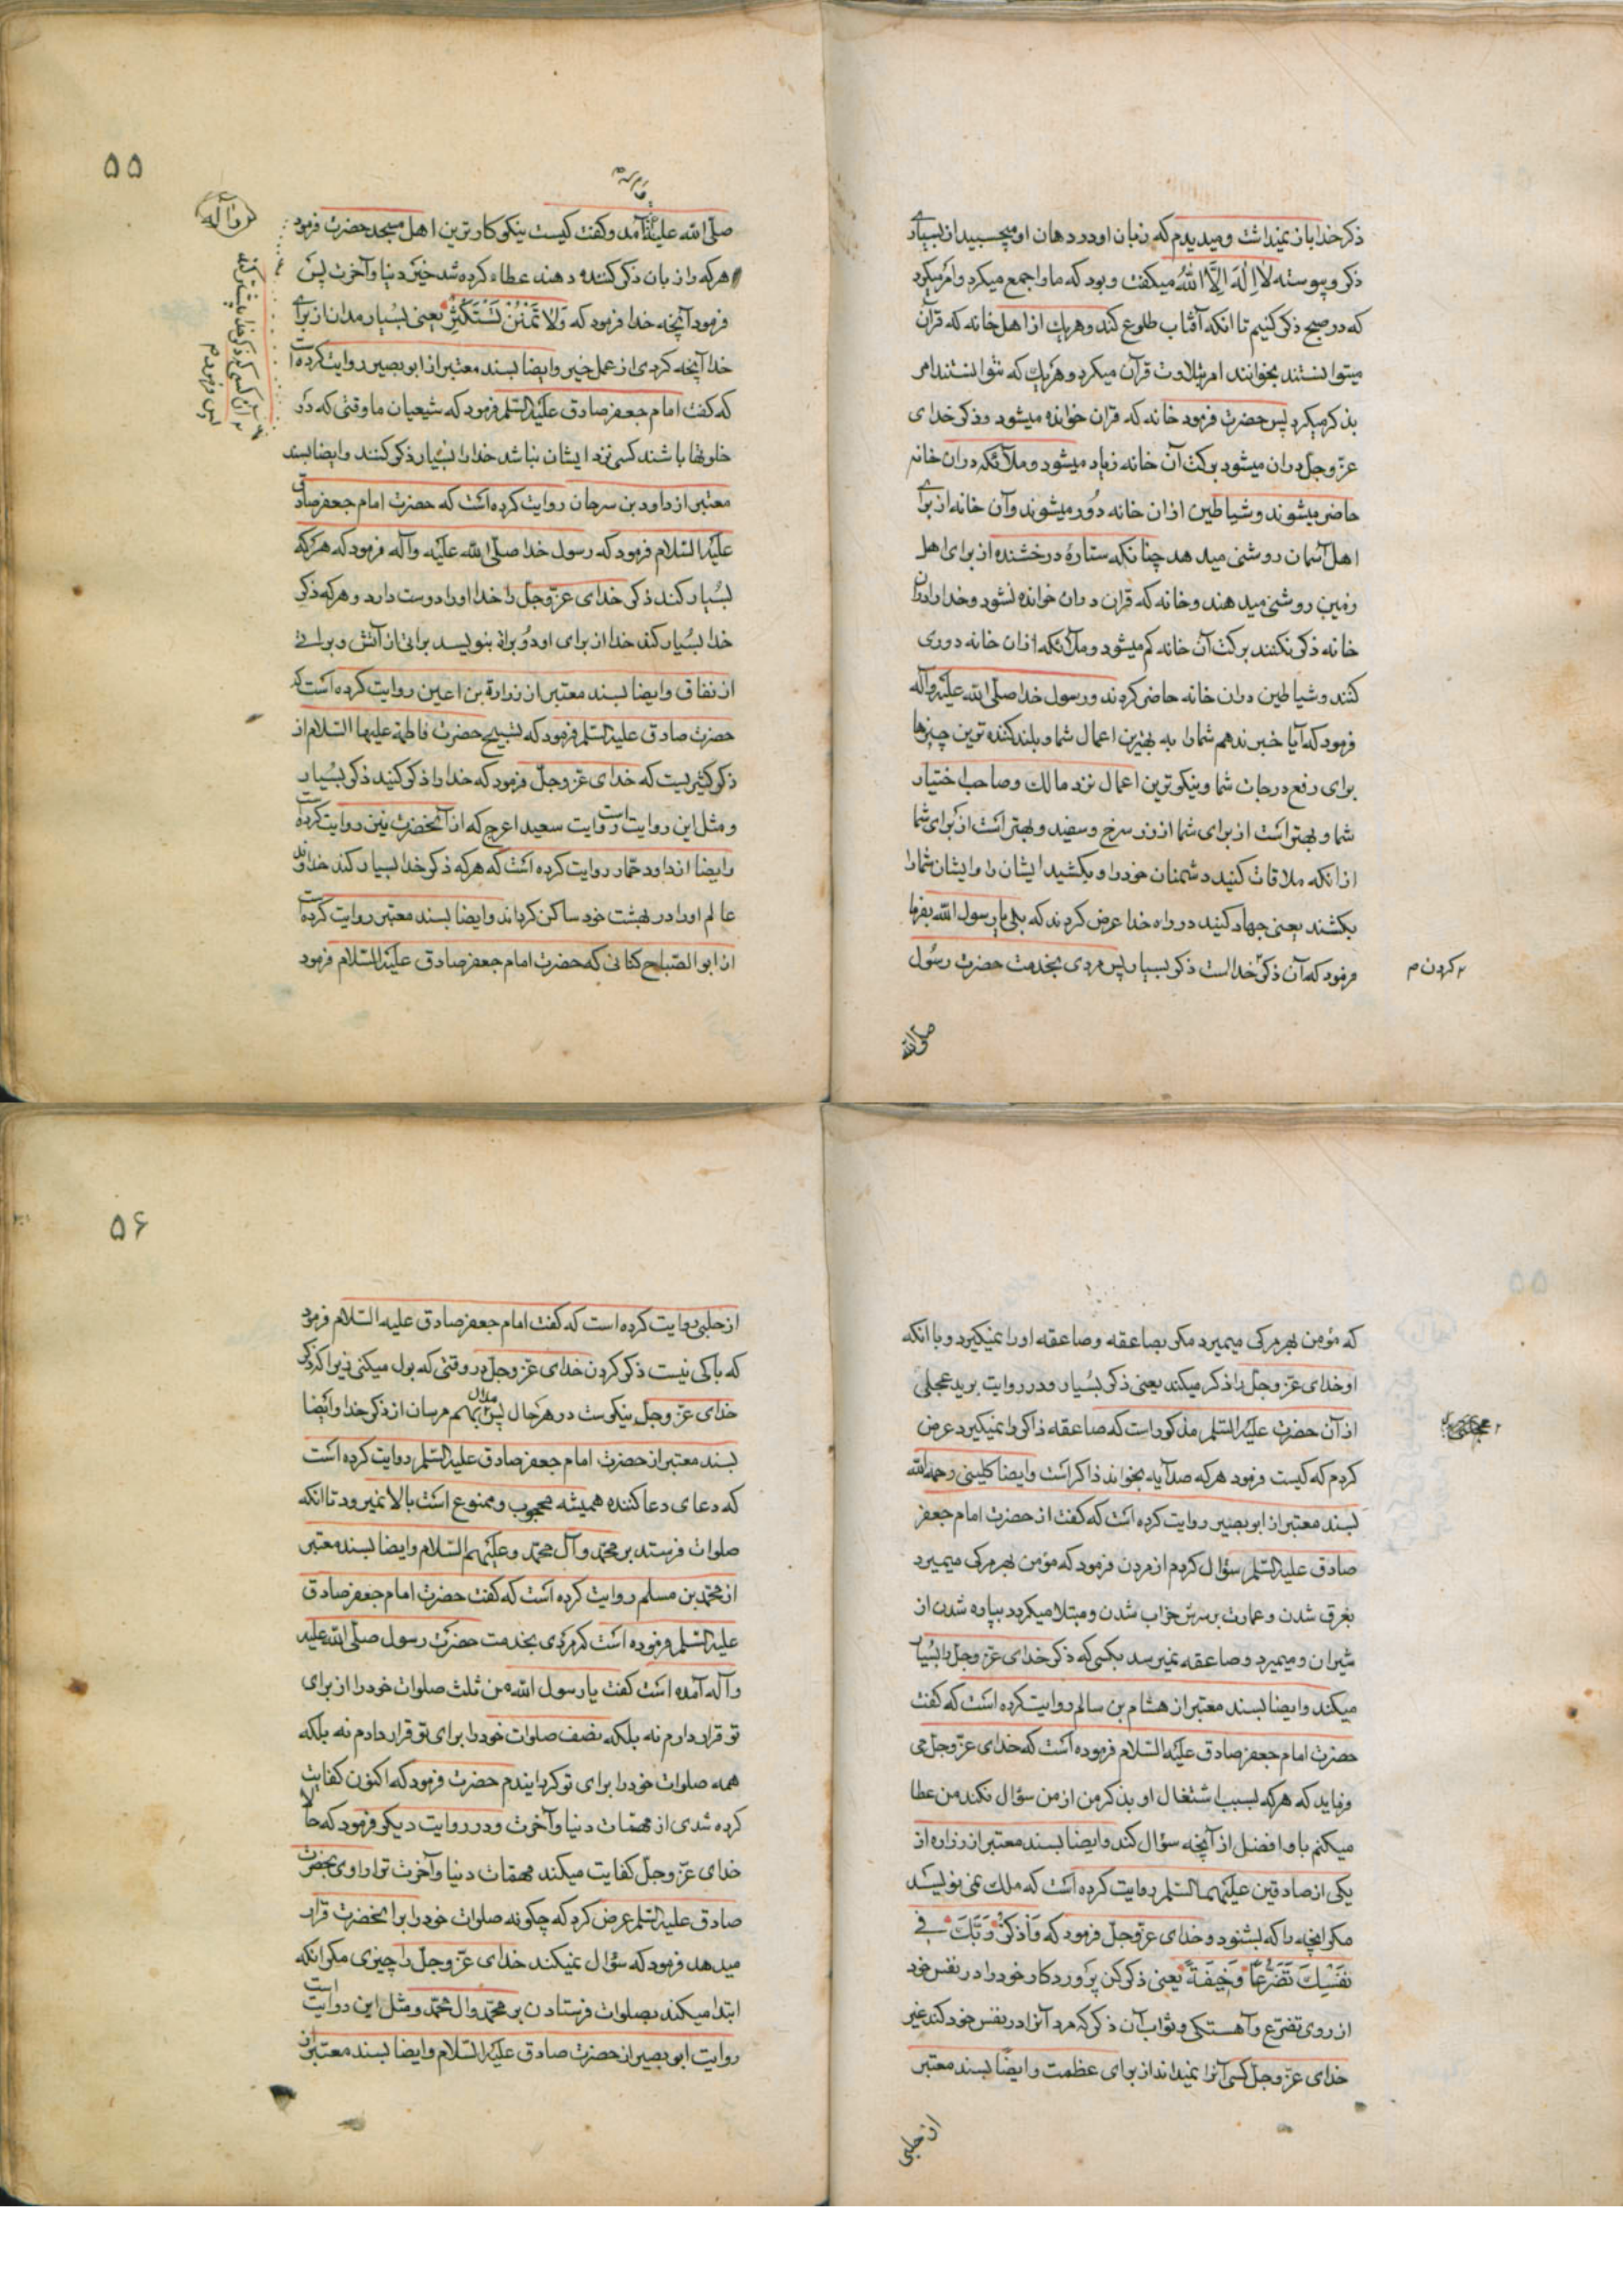 ذکر خدا باز نمیداشت و میدیدم که زبان او در دهان او میچسبید از بسیاری
ذکر و پیوسته لا اِلٰهَ اِلَّا اللهُ میکفت و بود که ما را جمع میکرد و امر میکرد
که در صبح ذکر کنیم تا انکه آفتاب طلوع کند و هر یك از اهل خانه که قرآن
میتوانستند بخوانند امر بتلاوت قرآن میکرد و هر یك که نتوانستند امر
بذکر میکرد پس حضرت فرمود خانه که قران خوانده میشود و ذکر خدای
عزّ و جلّ دران میشود برکت آن خانه زیاد میشود و ملائکه دران خانه
حاضر میشوند و شیاطین ازان خانه دُور میشوند و آن خانه از برای
اهل آسمان روشنی میدهد چنانکه ستارهٔ درخشنده از برای اهل
زمین روشنی میدهند و خانه که قران دران خوانده نشود و خدا را دران
خانه ذکر نکنند برکت آن خانه کم میشود و ملائکه ازان خانه دوری
کنند و شیاطین دران خانه حاضر کردند و رسول خدا صلّی الله علیه وآله
فرمود که آیا خبر ندهم شما را به بهترین اعمال شما و بلند کننده ترین چیزها
برای رفع درجات شما و نیکوترین اعمال نزد مالك و صاحب اختیار
شما و بهتر است از برای شما از زر سرخ و سفید و بهتر است از برای شما
ازانکه ملاقات کنید دشمنان خود را و بکشید ایشان را و ایشان شما را
بکشند یعنی جهاد کنید در راه خدا عرض کردند که بلی یا رسول الله بفرما
فرمود که آن ذکر خداست ذکر بسیار پس مردی بخدمت حضرت رسُول
کردن م
صلّی الله
۵۵
وآله
صلّی الله علیه آمد و کفت کیست نیکوکار ترین اهل مسجد حضرت فرمود
هر که را زبان ذکر کننده دهند عطاء کرده شد خیر دنیا و آخرت پس
فرمود آنچه خدا فرمود که وَلا تَمْنُنْ تَسْتَكْثِرُ یعنی بسُیار مدان از برای
خدا آنچه کردی از عمل خیر و ایضا بسند معتبر از ابو بصیر روایت کرده است
که کفت امام جعفر صادق علیه السّلم فرمود که شیعیان ما وقتی که در
خلوتها باشند کسی نزد ایشان نباشد خدا را بسُیار ذکر کنند و ایضا بسند
معتبر از داود بن سرحان روایت کرده است که حضرت امام جعفر صادق
علیه السّلام فرمود که رسول خدا صلّی الله علیه وآله فرمود که هر که
بسُیار کند ذکر خدای عزّ و جلّ را خدا او را دوست دارد و هر که ذکر
خدا بسُیار کند خدا از برای او دو براة بنویسد براتی از آتش و براتی
از نفاق و ایضا بسند معتبر از زرارة بن اعین روایت کرده است که
حضرت صادق علیه السّلم فرمود که تسبیح حضرت فاطمة علیها السّلام از
ذکر کثیریست که خدای عزّ و جلّ فرمود که خدا را ذکر کنید ذکر بسُیار
و مثل این روایت است روایت سعید اعرج که از آنحضرت نیز روایت کرده است
وایضا از داود حمّار روایت کرده است که هر که ذکر خدا بسیار کند خداوند
عالم او را در بهشت خود ساکن کرداند و ایضا بسند معتبر روایت کرده است
از ابو الصّباح کنانی که حضرت امام جعفر صادق علیه السّلام فرمود
که مؤمن بهر مرکی میمیرد مکر بصاعقه و صاعقه او را نمیکیرد و با انکه
او خدای عزّ و جلّ را ذکر میکند یعنی ذکر بسُیار و در روایت برید عجلی
از آن حضرت علیه السّلم مذکور است که صاعقه ذاکر را نمیکیرد عرض
کردم که کیست فرمود هر که صد آیه بخواند ذاکر است و ایضا کلینی رحمه الله
بسند معتبر از ابو بصیر روایت کرده است که کفت از حضرت امام جعفر
صادق علیه السّلم سؤال کردم از مردن فرمود که مؤمن بهر مرکی میمیرد
بغرق شدن و عمارت بر سرش خراب شدن و مبتلا میکردد بپاره شدن از
شیران و میمیرد و صاعقه نمیرسد بکسی که ذکر خدای عزّ و جلّ را بسُیار
میکند و ایضا بسند معتبر از هشام بن سالم روایت کرده است که کفت
حضرت امام جعفر صادق علیه السّلام فرموده است که خدای عزّ و جلّ می
فرماید که هر که بسبب اشتغال او بذکر من از من سؤال نکند من عطا
میکنم باو افضل از آنچه سؤال کند و ایضا بسند معتبر از زراره از
یکی از صادقین علیهما السّلم روایت کرده است که ملك نمی نویسد
مکر انچه را که بشنود و خدای عزّ و جلّ فرمود که وَاذْکُرْ رَبَّكَ فی
نَفْسِكَ تَضَرُّعًا وَخِیفَةً یعنی ذکر کن پرَوردکار خود را در نفس خود
از روی تضرّع و آهستکی و ثواب آن ذکر که مرد آنرا در نفس خود کند غیر
خدای عزّ و جلّ کسی آنرا نمیداند از برای عظمت و ایضًا بسند معتبر
از حلبی
۵۶
از حلبی روایت کرده است که کفت امام جعفر صادق علیه السّلام فرمود
که باکی نیست ذکر کردن خدای عزّ و جلّ در وقتی که بول میکنی زیرا که ذکر
خدای عزّ و جلّ نیکوست در هر حال پس ملال بهم مرسان از ذکر خدا و ایضا
بسند معتبر از حضرت امام جعفر صادق علیه السّلم روایت کرده است
که دعای دعا کننده همیشه محجوب و ممنوع است بالا نمیرود تا انکه
صلوات فرستد بر محمّد و آل محمّد و علیهم السّلام و ایضا بسند معتبر
از محمّد بن مسلم روایت کرده است که کفت حضرت امام جعفر صادق
علیه السّلم فرموده است که مردی بخدمت حضرت رسول صلّی الله علیه
وآله آمده است کفت یا رسول الله من ثلث صلوات خود را از برای
تو قرار دارم نه بلکه نصف صلوات خود را برای تو قرار دادم نه بلکه
همه صلوات خود را برای تو کردانیدم حضرت فرمود که اکنون کفایت
کرده شدی از مهمّات دنیا و آخرت و در روایت دیکر فرمود که حالا
خدای عزّ و جلّ کفایت میکند مهمّات دنیا و آخرت ترا راوی بحضرت
صادق علیه السّلم عرض کرد که چکونه صلوات خود را برا انحضرت قرار
میدهد فرمود که سؤال نمیکند خدای عزّ و جلّ را چیزی مکر انکه
ابتدا میکند بصلوات فرستادن بر محمّد وال محمّد و مثل این روایت است
روایت ابو بصیر از حضرت صادق علیه السّلام و ایضا بسند معتبر از